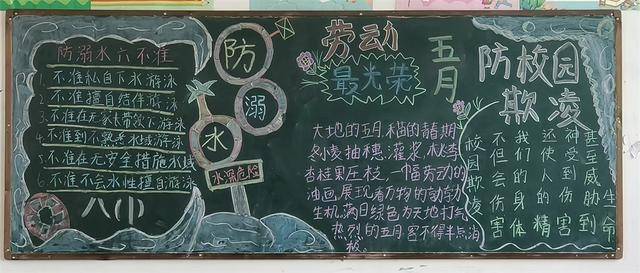 防溺水六不准
1.不准私自下水游泳
2.不准擅自结伴游泳
3.不准在无家长带领下游泳
4.不准到不熟悉水域游泳
5.不准在无安全措施水域
6.不准不会水性擅自游泳
八(1)
防
溺
水
水深危险
劳动
最光荣
五月
大地的五月,稻的
冬麦抽穗,灌浆,桃李
杏柱果压枝,一幅劳动的
油画,展现着万物的勃勃
生机,满目绿色为天地打气
热烈的五月,容不得半点消
极。
防校园
欺凌
校园欺凌
不但会伤害
我们的身体
还使人精
神受到伤害
甚至威胁到
生命